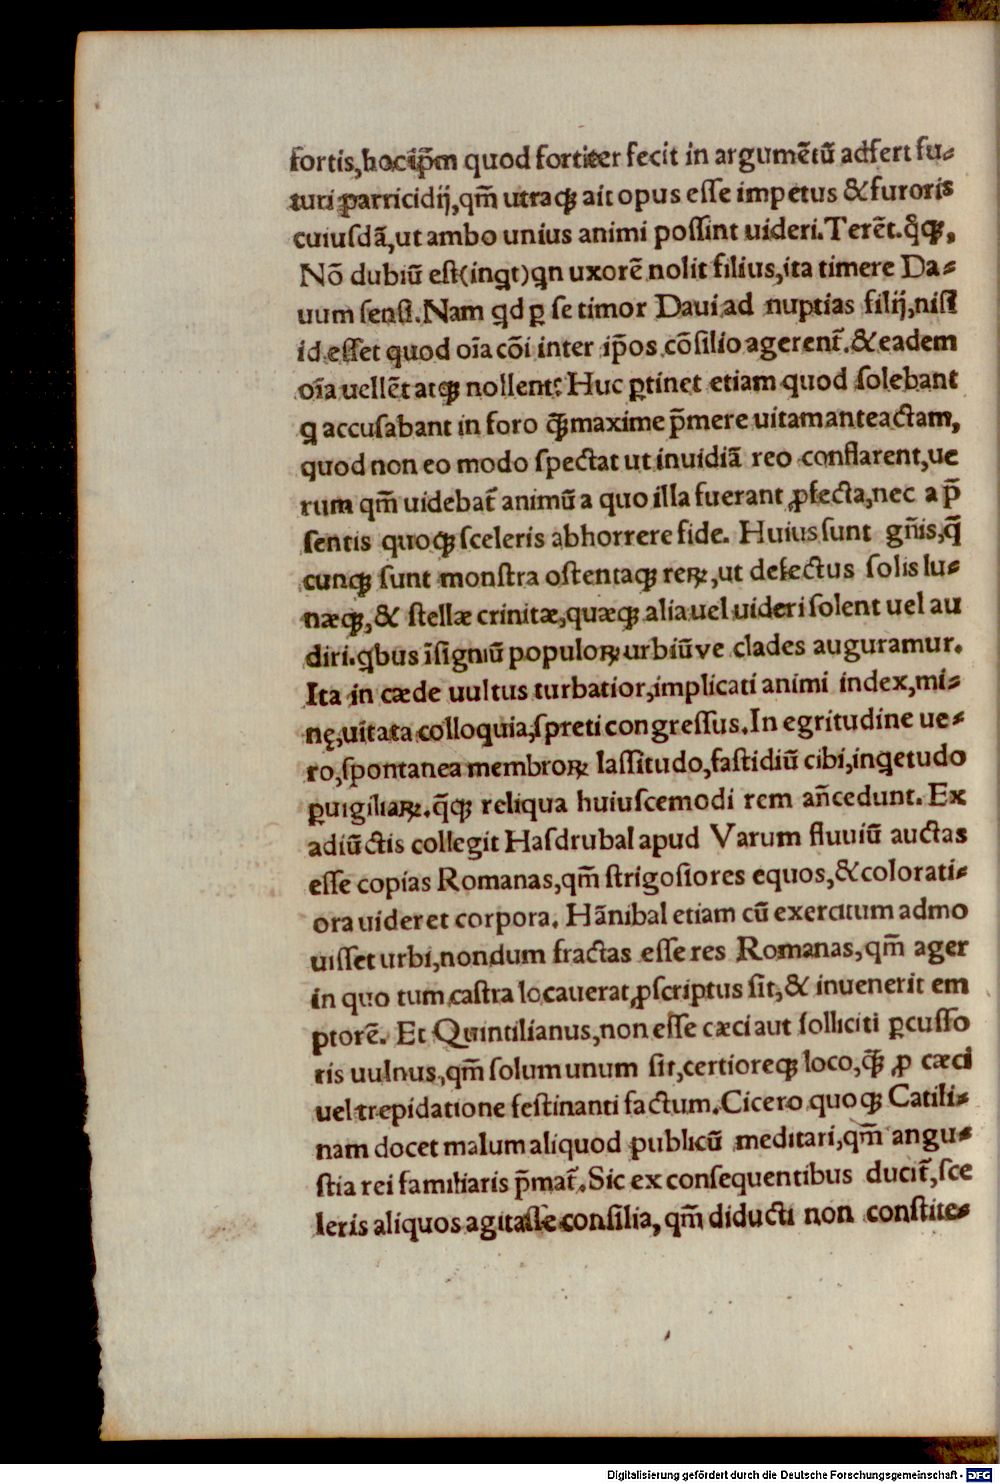 fortis,hocip̃m quod fortiter fecit in argumẽtũ adfert fu⸗
turi ꝑarricidij,qm̃ utraqꝫ ait opus eſſe impetus &furoris
cuiuſdã,ut ambo unius animi poſſint uideri.Terẽt.q̊qꝫ,
Nõ dubiũ eſt(inqt)qn uxorẽ nolit filius,ita timere Da⸗
uum ſenſi.Nam qd ꝑ ſe timor Daui ad nuptias filij,niſi
id eſſet quod oĩa cõi inter ip̃os cõſilio agerent̃.&eadem
oĩa uellẽt atqꝫ nollent? Huc ꝑtinet etiam quod ſolebant
q accuſabant in foro q̃ꝫmaxime p̃mere uitamanteactam,
quod non eo modo ſpectat ut inuidiã reo conflarent,ue
rum qm̃ uidebat̃ animũ a quo illa fuerant ꝓfecta,nec a p̃
ſentis quoqꝫ ſceleris abhorrere fide. Huius ſunt gñis,q̃
cunqꝫ ſunt monſtra oſtentaqꝫ reꝝ,ut defectus ſolis lu⸗
næqꝫ,& ſtellæ crinitæ,quæqꝫ alia uel uideri ſolent uel au
diri.qbus ĩſigniũ populoꝝ urbiũve clades auguramur.
Ita in cæde uultus turbatior,implicati animi index,mi⸗
nę,uitata colloquia,ſpreti congreſſus.In egritudine ue⸗
ro,ſpontanea membroꝝ laſſitudo,faſtidiũ cibi,inqetudo
ꝑuigiliaꝝ.q̃qꝫ reliqua huiuſcemodi rem añcedunt. Ex
adiũctis collegit Haſdrubal apud Varum fluuiũ auctas
eſſe copias Romanas,qm̃ ſtrigoſiores equos,&colorati⸗
ora uideret corpora. Hãnibal etiam cũ exercitum admo
uiſſet urbi,nondum fractas eſſe res Romanas,qm̃ ager
in quo tum caſtra locauerat ꝓſcriptus ſit,& inuenerit em
ptorẽ. Et Quintilianus,non eſſe cæci aut ſolliciti ꝑcuſſo
ris uulnus,qm̃ ſolum unum ſit,certioreqꝫ loco,q̃ꝫ ꝓ cæci
uel trepidatione feſtinanti factum.Cicero quoqꝫ Catili⸗
nam docet malum aliquod publicũ meditari,qm̃ angu⸗
ſtia rei familiaris p̃mat̃.Sic ex conſequentibus ducit̃,ſce
leris aliquos agitaſſe conſilia,qm̃ diducti non conſtite⸗
Digitalisierung gefördert durch die Deutsche Forschungsgemeinschaft - DFG